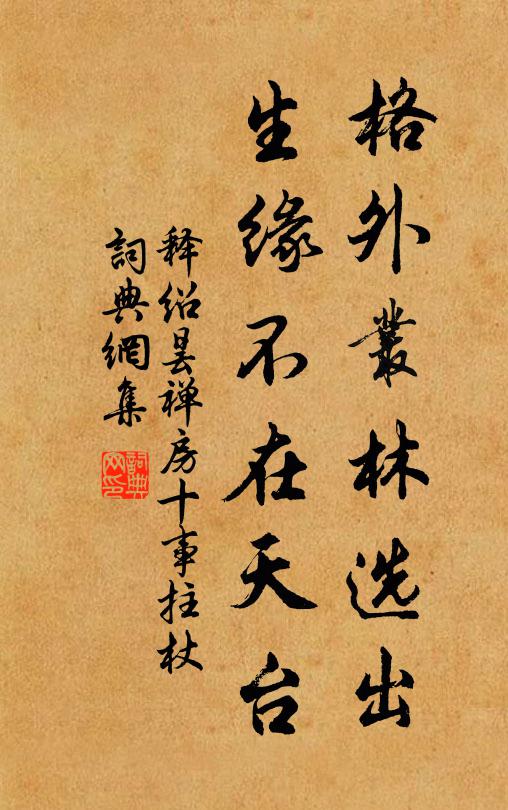 格外叢林选出
生缘不在天台
释绍昙禅房十事拄杖
詞典網集
詞典网印